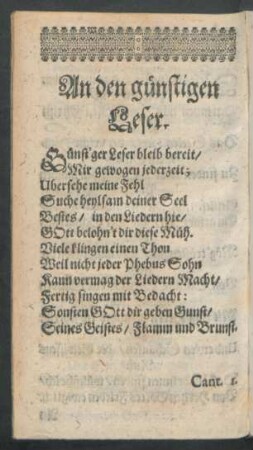 An den günstigen
Leser.
Günst'ger Leser bleib bereit/
Mir gewogen jederzeit;
Ubersehe meine Fehl
Suche heylsam deiner Seel
Bestes/ in den Liedern hie/
GOtt belohn't dir diese Müh.
Viele klingen einen Thon
Weil nicht jeder Phebus Sohn
Kann vermag der Liedern Macht/
Fertig singen mit Bedacht:
Sonsten GOtt dir geben Gunst/
Seines Geistes/ Flamm und Brunst.
Cant. 1.